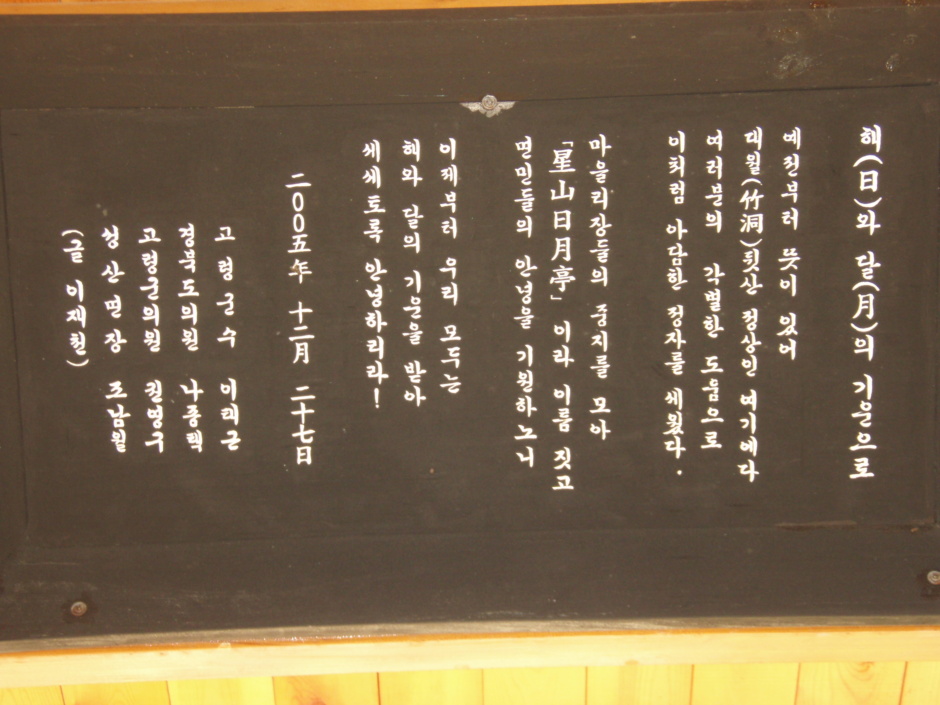 해(日)와 달(月)의 기운으로
예전부터 뜻이 있어
대월(竹洞)뒷산 정상인 여기에다
여러분의 각별한 도움으로
이처럼 아담한 정자를 세웠다.
마을리장들의 중지를 모아
「星山日月亭」이라 이름 짓고
면민들의 안녕을 기원하노니
이제부터 우리 모두는
해와 달의 기운을 받아
세세토록 안녕하리라!
二00五年 十二月 二十七日
고령군수 이태근
경북도의원 나종택
고령군의원 권영구
성산면장 조남월
(글 이재원)